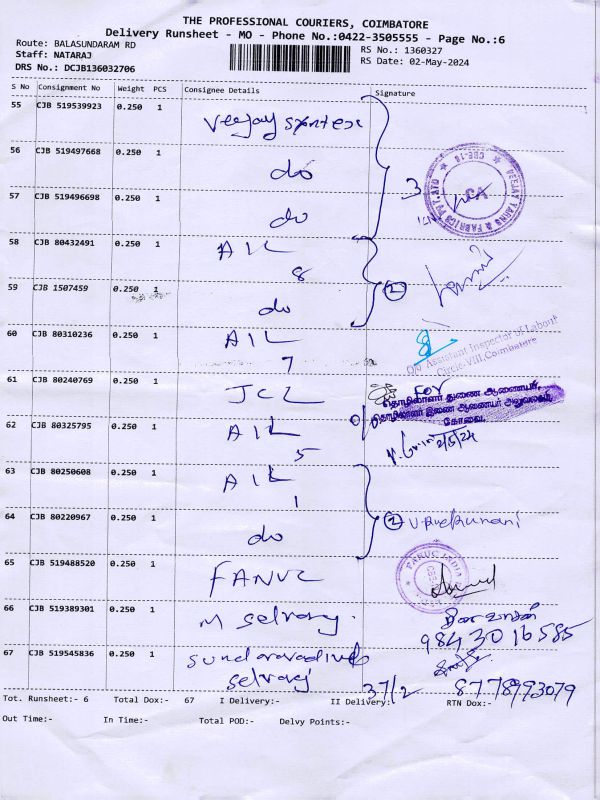 THE PROFESSIONAL COURIERS, COIMBATORE
Delivery Runsheet - MO - Phone No.:0422-3505555 - Page No.:6
Route: BALASUNDARAM RD
RS No.: 1360327
Staff: NATARAJ
RS Date: 02-May-2024
DRS No.: DCJB136032706
S No Consignment No Weight PCS Consignee Details Signature
55 CJB 519539923 0.250 1 Veejay Syntex
56 CJB 519497668 0.250 1 do
57 CJB 519496698 0.250 1 do
3
VEEJAY YARNS & FABRICS PVT. LTD
CBE-18
58 CJB 80432491 0.250 1 AIL 8
59 CJB 1507459 0.250 1 do
2
60 CJB 80310236 0.250 1 AIL 7
O/o Assistant Inspector of Labour
Circle VIII, Coimbatore
61 CJB 80240769 0.250 1 JCL
For
தொழிலாளர் துணை ஆணையர்,
தொழிலாளர் இணை ஆணையர் அலுவலகம்,
கோவை.
62 CJB 80325795 0.250 1 AIL 5
2/5/24
63 CJB 80250608 0.250 1 AIL 1
64 CJB 80220967 0.250 1 do
2
65 CJB 519488520 0.250 1 FANUC
FANUC INDIA
66 CJB 519389301 0.250 1 M Selvaraj
9843016585
67 CJB 519545836 0.250 1 Sundaravadivel
Selvaraj
37/2
8778993079
Tot. Runsheet:- 6 Total Dox:- 67 I Delivery:- II Delivery:- RTN Dox:-
Out Time:- In Time:- Total POD:- Delvy Points:-